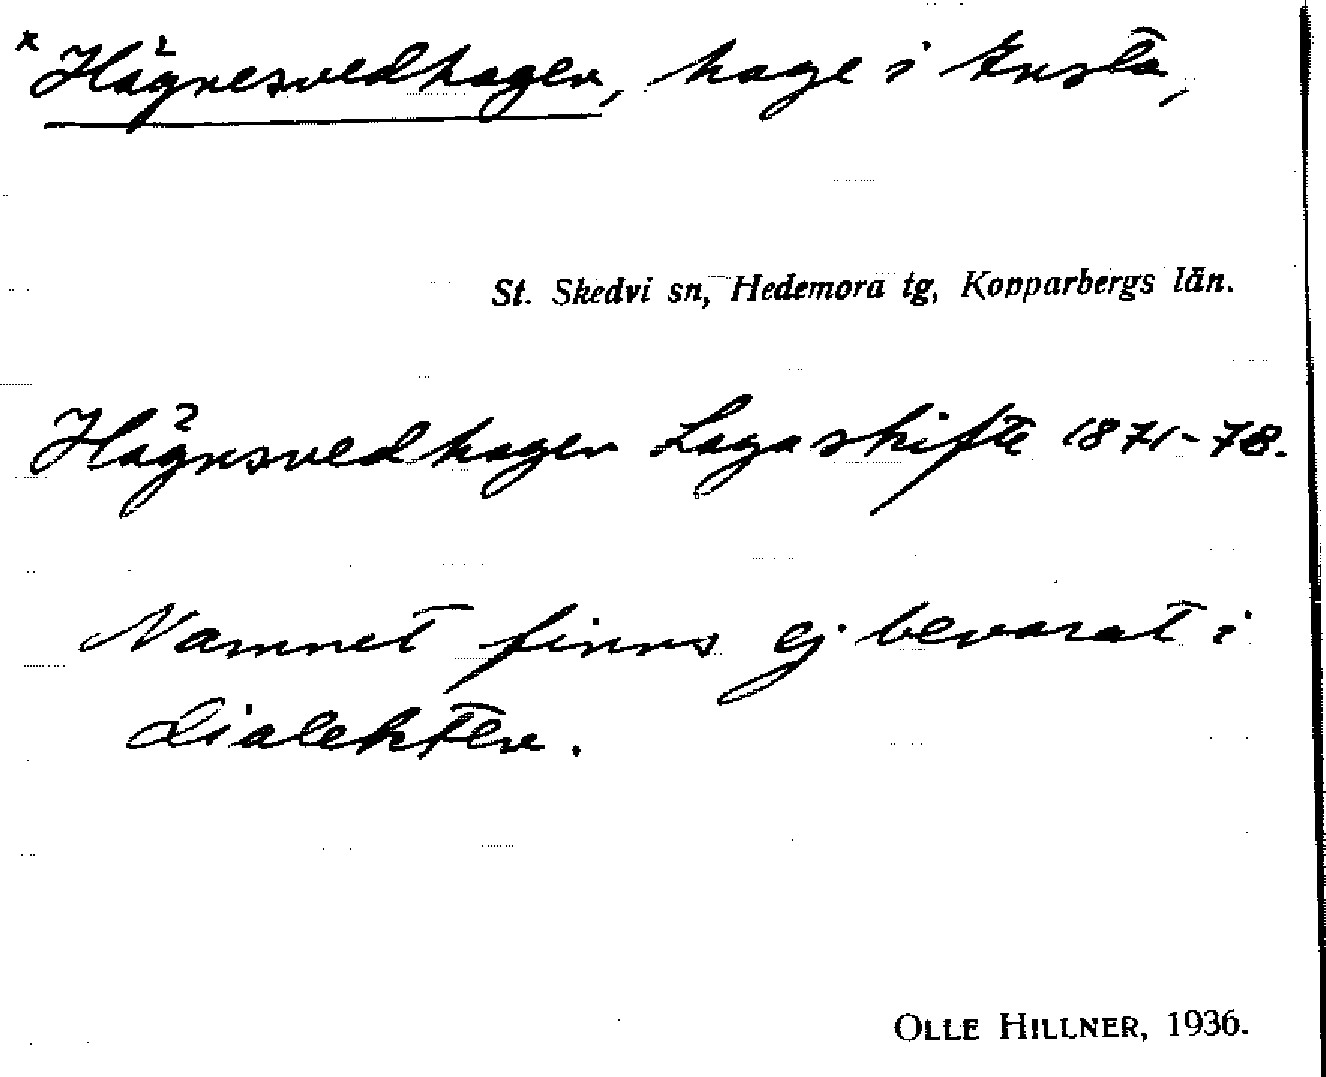 *Hågnesvedhagen, hage i Ensta,
St. Skedvi sn, Hedemora tg, Kopparbergs län.
Hågnesvedhagen Laga skifte 1871-78.
Namnet finns ej bevarat i
dialekten.
OLLE HILLNER, 1936.